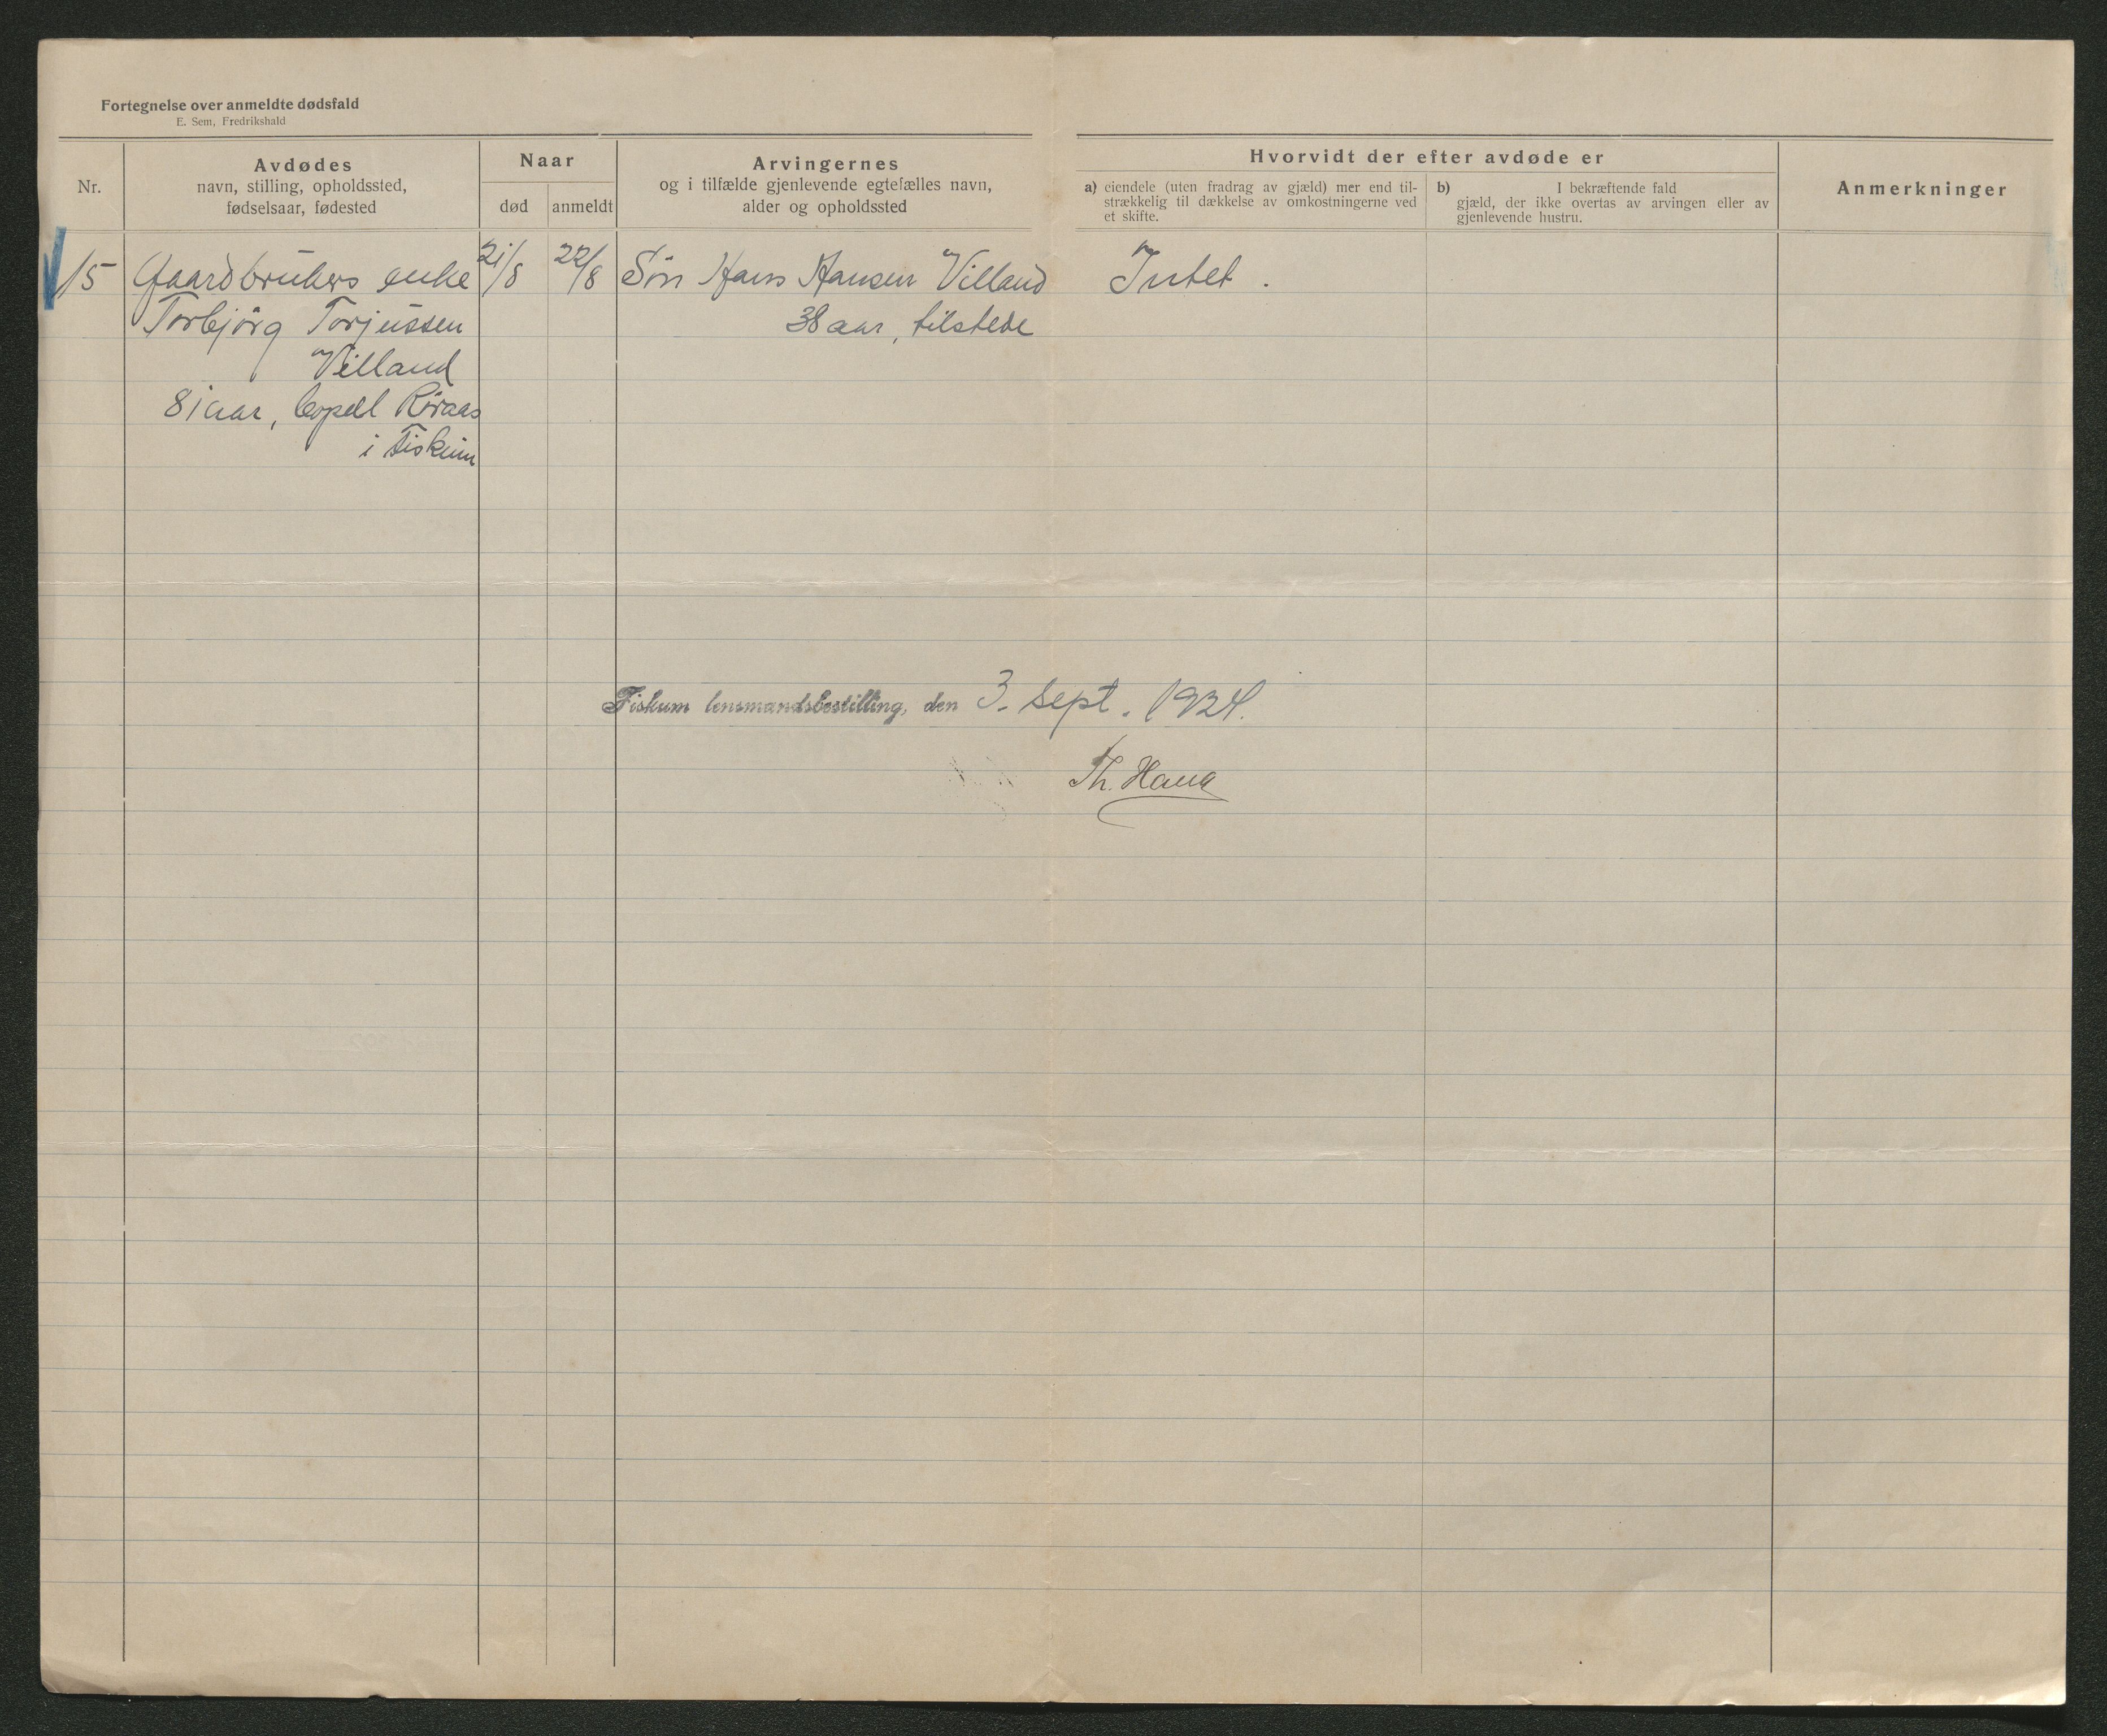 Fortegnelse over anmeldte dødsfald
E. Sem, Fredrikshald
Nr.
Avdødes
navn, stilling, opholdssted,
fødselsaar, fødested
Naar
død
anmeldt
Arvingernes
og i tilfælde gjenlevende egtefælles navn,
alder og opholdssted
Hvorvidt der efter avdøde er
a) eiendele (uten fradrag av gjæld) mer end til-
strækkelig til dækkelse av omkostningerne ved
et skifte.
b) I bekræftende fald
gjæld, der ikke overtas av arvingen eller av
gjenlevende hustru.
Anmerkninger
15 Gaardbrukers enke 21/8 22/8 Søn Hans Hansen Villand Intet.
Torbjörg Torjussen 38 aar, tilstede
Villand
81 aar, Røraas
i Fiskum
Fiskum lensmandsbestilling, den 3. sept. 1924.
Th. Haug